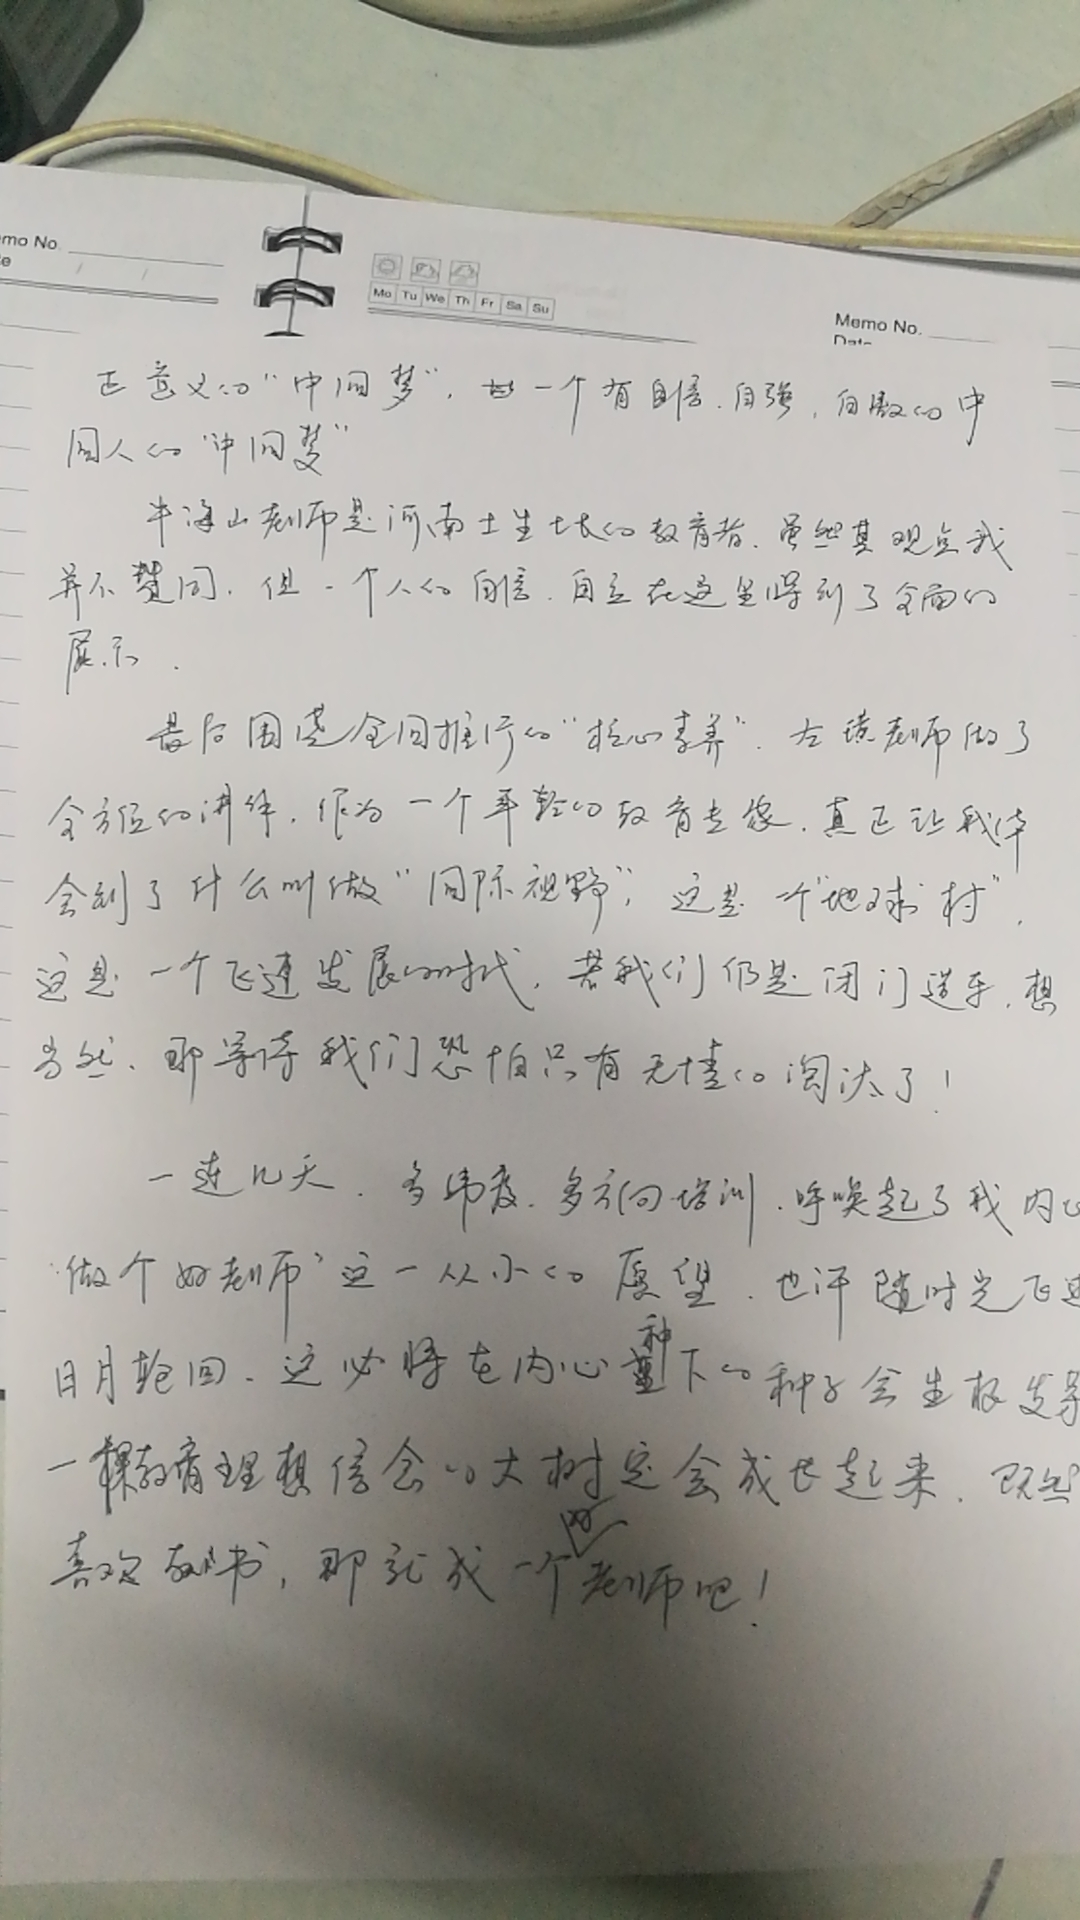 emo No.
e / /
Mo Tu We Th Fr Sa Su
Memo No.
Date
正意义的“中国梦”,一个有自信、自强、自傲的中
国人的“中国梦”
牛海山老师是河南土生土长的教育者、虽然其观点我
并不赞同、但一个人的自信、自立在这里得到了全面的
展示.
最后围绕全国推行的“核心素养”、左璜老师做了
全方位的讲解,作为一个年轻的教育专家、真正让我体
会到了什么叫做“国际视野”,这是一个“地球村”、
这是一个飞速发展的时代,若我们仍是闭门造车、想
当然、那等待我们恐怕只有无情的淘汰了!
一连几天、多纬度、多方向培训、呼唤起了我内心
“做个好老师”这一从小的愿望、也许随时光飞逝
日月轮回、这必将在内心种下的种子会生根发芽
一棵教育理想信念的大树定会成长起来、既然
喜欢教书,那就成一个好老师吧!